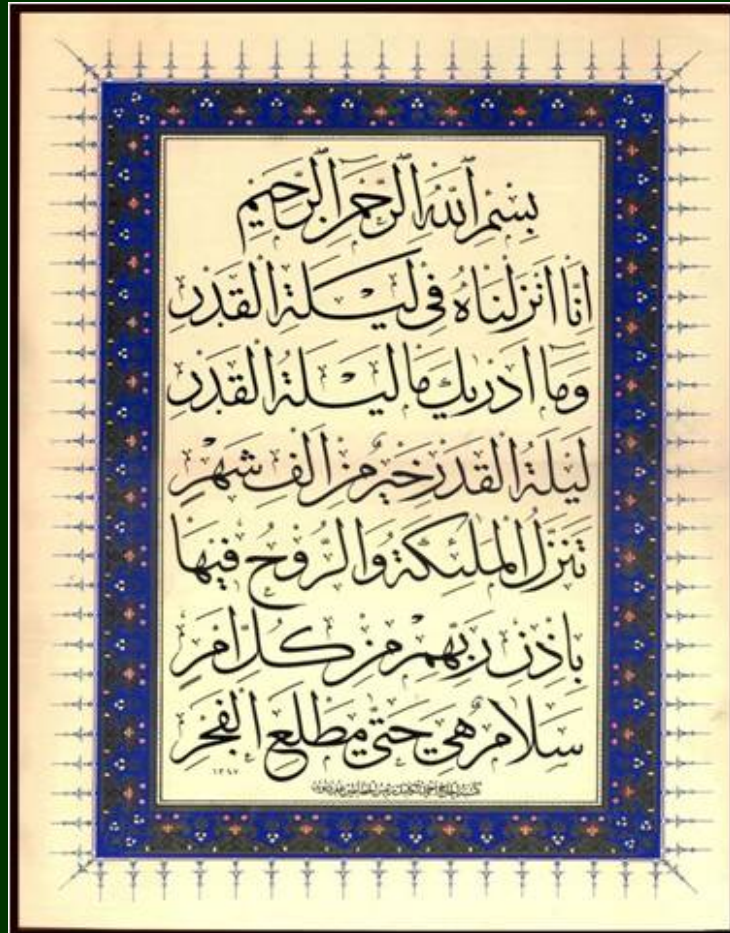 بِسْمِ ٱللّٰهِ ٱلرَّحْمٰنِ ٱلرَّحِيمِ
اِنَّا اَنْزَلْنَاهُ فِى لَيْلَةِ الْقَدْرِ
وَمَآ اَدْرٰيكَ مَا لَيْلَةُ الْقَدْرِ
لَيْلَةُ الْقَدْرِ خَيْرٌ مِنْ اَلْفِ شَهْرٍ
تَنَزَّلُ الْمَلٰئِكَةُ وَالرُّوحُ فِيهَا
بِاِذْنِ رَبِّهِمْ مِنْ كُلِّ اَمْرٍ
سَلَامٌ هِىَ حَتّٰى مَطْلَعِ الْفَجْرِ
١٣٩٧